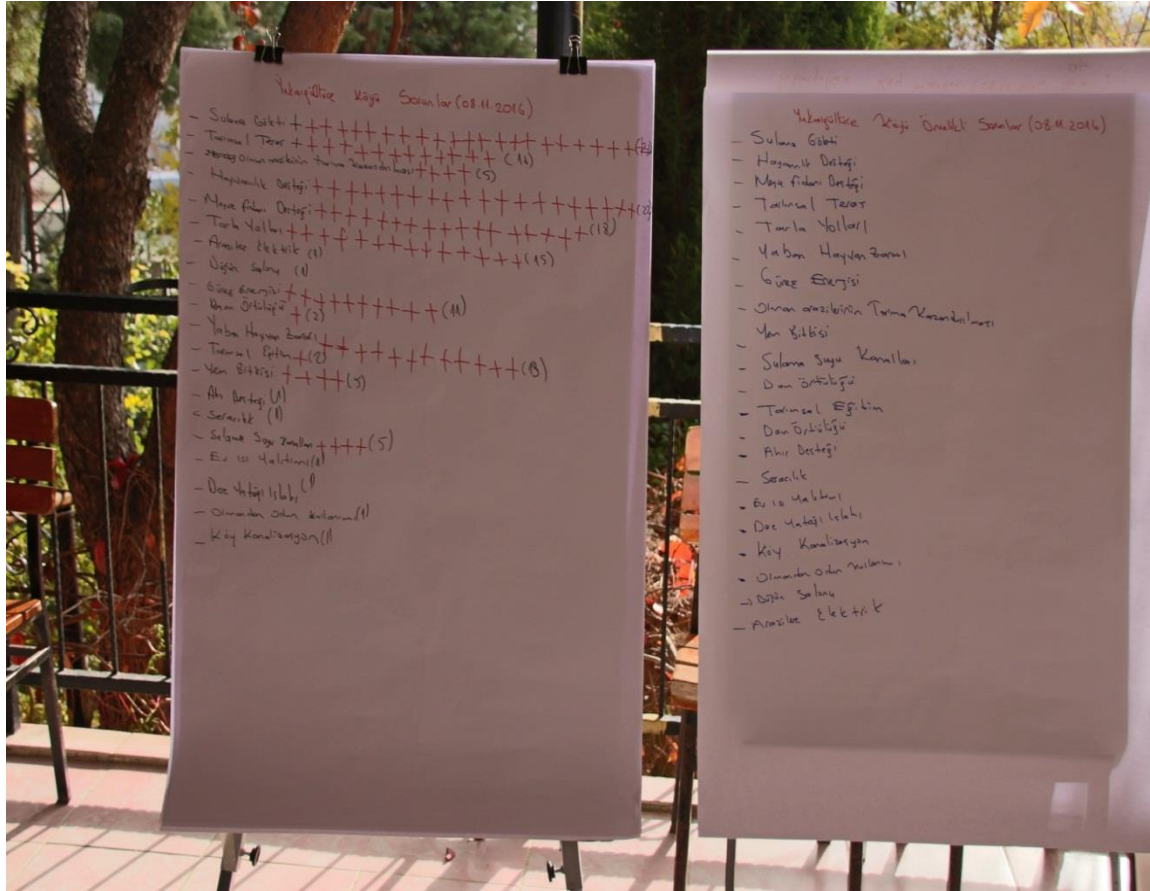 Yukarıgültüce Köyü Sorunlar (08.11.2016)
- Sulama Göleti +++++++++++++++++++++
- Tarımsal Teras ++++++++++++ (14)
- olmayan arazilerin tarıma kazandırılması ++++ (5)
- Hayvancılık Desteği ++++++++++++++++++++
- Meyve fidanı Desteği ++++++++++++++++++ (18)
- Tarla Yolları +++++++++++++++ (15)
- Arazilere Elektrik (1)
- Düğün Salonu (1)
- Güneş Energisi ++++++++++ (11)
- Örtülüğü + (2)
- Yaban Hayvan Zararı +++++++++++++ (13)
- Tarımsal Eğitim + (2)
- Yem Bitkisi ++++ (5)
- Ahır Desteği (1)
- Seracılık (1)
- Sulama Suyu Kanalları ++++ (5)
- Ev ısı Yalıtımı (1)
- Dere Yatağı Islahı (1)
- Ormandan Odun kullanımı (1)
- Köy Kanalizasyon (1)
Yukarıgültüce Köyü Öncelikli Sorunlar (08.11.2016)
- Sulama Göleti
- Hayvancılık Desteği
- Meyve fidanı Desteği
- Tarımsal Teras
- Tarla Yolları
- Yaban Hayvan Zararı
- Güneş Energisi
- Olmayan arazilerinin Tarıma Kazandırılması
- Yem Bitkisi
- Sulama Suyu Kanalları
- Dam Örtülüğü
- Tarımsal Eğitim
- Dam Örtülüğü
- Ahır Desteği
- Seracılık
- Ev ısı Yalıtımı
- Dere Yatağı Islahı
- Köy Kanalizasyon
- Ormandan Odun Kullanımı
-> Düğün Salonu
- Arazilere Elektrik